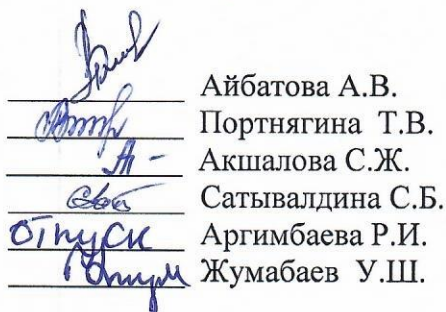 Айбатова А.В.
Портнягина Т.В.
Акшалова С.Ж.
Сатывалдина С.Б.
отпуск Аргимбаева Р.И.
Жумабаев У.Ш.